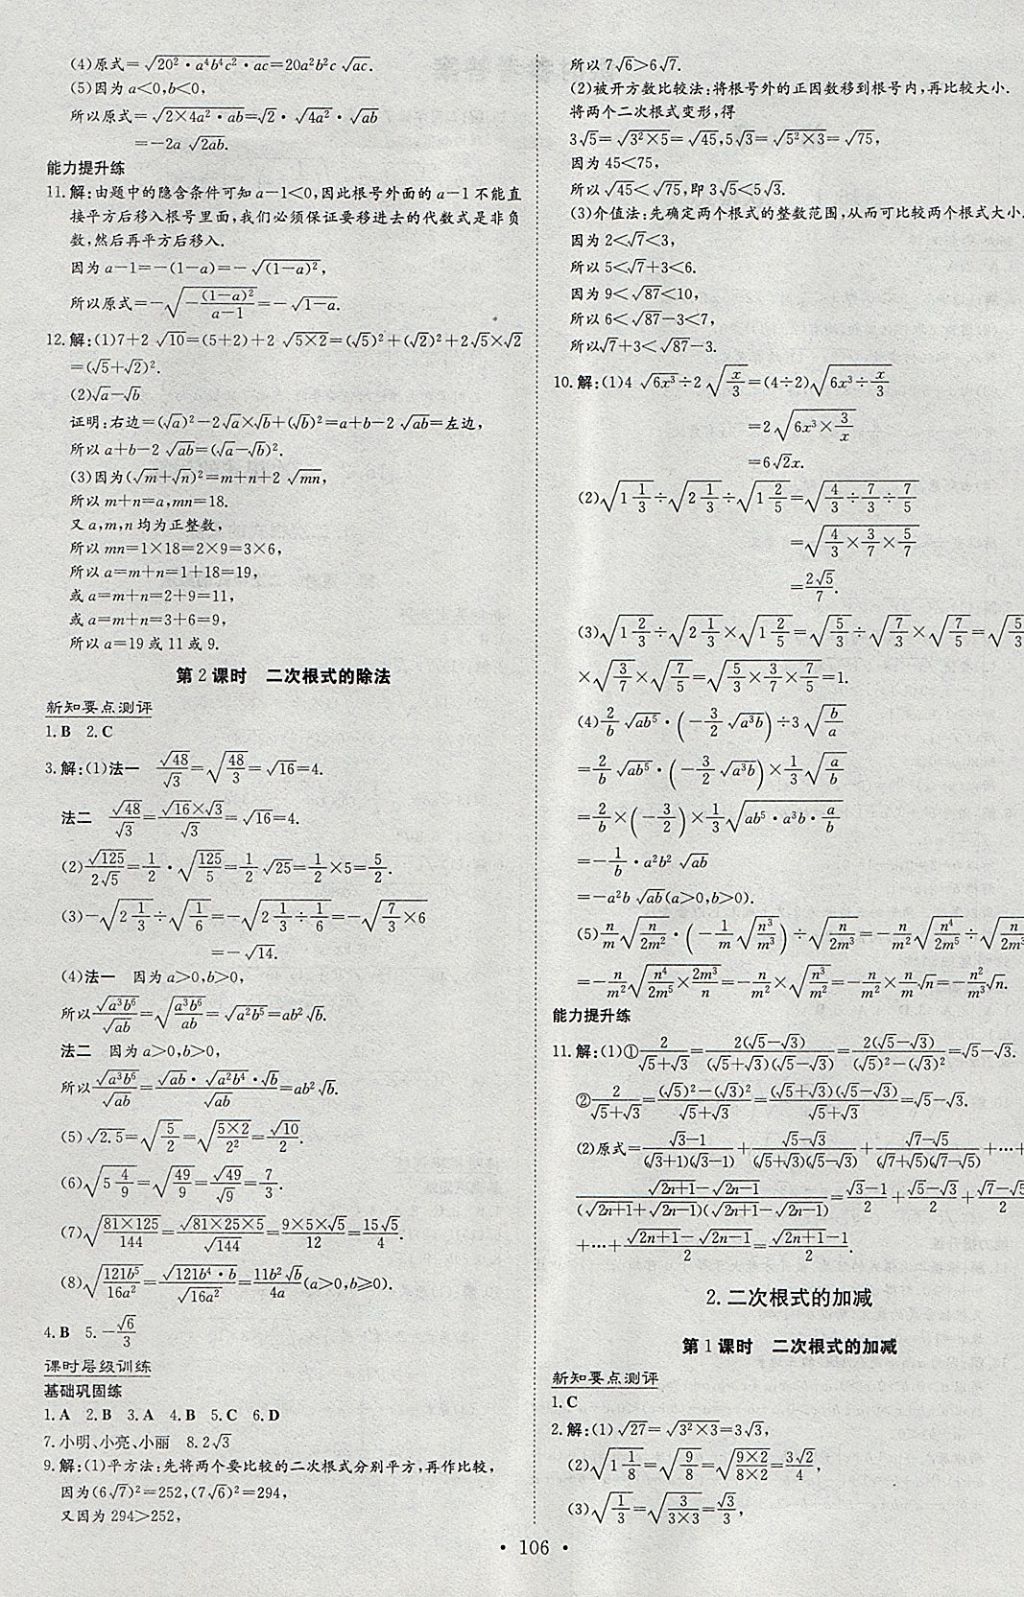 (4)原式=√(20²·a⁴b⁴c²·ac)=20a²b²c√(ac).
(5)因为a<0,b<0,
所以原式=√(2×4a²·ab)=√2·√(4a²)·√(ab)
=-2a√(2ab).
能力提升练
11.解:由题中的隐含条件可知a-1<0,因此根号外面的a-1不能直
接平方后移入根号里面,我们必须保证要移进去的代数式是非负
数,然后再平方后移入.
因为a-1=-(1-a)=-√((1-a)²),
所以原式=-√(-(1-a)²/(a-1))=-√(1-a).
12.解:(1)7+2√10=(5+2)+2√(5×2)=(√5)²+(√2)²+2√5×√2
=(√5+√2)².
(2)√a-√b
证明:右边=(√a)²-2√a×√b+(√b)²=a+b-2√(ab)=左边,
所以a+b-2√(ab)=(√a-√b)².
(3)因为(√m+√n)²=m+n+2√(mn),
所以m+n=a,mn=18.
又a,m,n均为正整数,
所以mn=1×18=2×9=3×6,
所以a=m+n=1+18=19,
或a=m+n=2+9=11,
或a=m+n=3+6=9,
所以a=19或11或9.
第2课时 二次根式的除法
新知要点测评
1.B 2.C
3.解:(1)法一 √48/√3=√(48/3)=√16=4.
法二 √48/√3=(√16×√3)/√3=√16=4.
(2)√125/(2√5)=1/2·√(125/5)=1/2√25=1/2×5=5/2.
(3)-√(2 1/3)÷√(1/6)=-√(2 1/3÷1/6)=-√(7/3×6)
=-√14.
(4)法一 因为a>0,b>0,
所以√(a³b⁶)/√(ab)=√(a³b⁶/ab)=√(a²b⁵)=ab²√b.
法二 因为a>0,b>0,
所以√(a³b⁶)/√(ab)=(√(ab)·√(a²b⁴)·√b)/√(ab)=ab²√b.
(5)√2.5=√(5/2)=√((5×2)/2²)=√10/2.
(6)√(5 4/9)=√(49/9)=√49/√9=7/3.
(7)√((81×125)/144)=√(81×25×5)/√144=(9×5×√5)/12=15√5/4.
(8)√(121b⁵/16a²)=√(121b⁴·b)/√(16a²)=11b²√b/4a(a>0,b≥0).
4.B 5.-√6/3
课时层级训练
基础巩固练
1.A 2.B 3.A 4.B 5.C 6.D
7.小明、小亮、小丽 8.2√3
9.解:(1)平方法:先将两个要比较的二次根式分别平方,再作比较,
因为(6√7)²=252,(7√6)²=294,
又因为294>252,
所以7√6>6√7.
(2)被开方数比较法:将根号外的正因数移到根号内,再比较大小.
将两个二次根式变形,得
3√5=√(3²×5)=√45,5√3=√(5²×3)=√75,
因为45<75,
所以√45<√75,即3√5<5√3.
(3)介值法:先确定两个根式的整数范围,从而可比较两个根式大小.
因为2<√7<3,
所以5<√7+3<6.
因为9<√87<10,
所以6<√87-3<7,
所以√7+3<√87-3.
10.解:(1)4√(6x³)÷2√(x/3)=(4÷2)√(6x³÷x/3)
=2√(6x³×3/x)
=6√2x.
(2)√(1 1/3)÷√(2 1/3)÷√(1 2/5)=√(4/3÷7/3÷7/5)
=√(4/3×3/7×5/7)
=2√5/7.
(3)√(1 2/3)÷√(2 1/3)×√(1 2/5)=√(5/3)÷√(7/3)×√(7/5)=√(5/3)
×√(3/7)×√(7/5)=√(5/3×3/7×7/5)=1.
(4)2/b√(ab⁵)·(-3/2√(a³b))÷3√(b/a)
=2/b√(ab⁵)·(-3/2√(a³b))×1/3√(a/b)
=2/b×(-3/2)×1/3√(ab⁵·a³b·a/b)
=-1/b·a²b²√(ab)
=-a²b√(ab)(a>0,b>0).
(5)n/m√(n/2m²)·(-1/m√(n³/m³))÷√(n/2m³)=-n/m²√(n⁴/2m⁵)÷√(n/2m³)
=-n/m²√(n⁴/2m⁵×2m³/n)=-n/m²×√(n³/m²)=-n/m²×n/m√n=-n²/m³√n.
能力提升练
11.解:(1)①2/(√5+√3)=2(√5-√3)/((√5+√3)(√5-√3))=2(√5-√3)/((√5)²-(√3)²)=√5-√3.
②2/(√5+√3)=((√5)²-(√3)²)/(√5+√3)=(√5+√3)(√5-√3)/(√5+√3)=√5-√3.
(2)原式=(√3-1)/((√3+1)(√3-1))+(√5-√3)/((√5+√3)(√5-√3))+(√7-√5)/((√7+√5)(√7-√5))+…+
(√(2n+1)-√(2n-1))/((√(2n+1)+√(2n-1))(√(2n+1)-√(2n-1)))=(√3-1)/2+(√5-√3)/2+(√7-√5)/2
+…+(√(2n+1)-√(2n-1))/2=(√(2n+1)-1)/2.
2.二次根式的加减
第1课时 二次根式的加减
新知要点测评
1.C
2.解:(1)√27=√(3²×3)=3√3,
(2)√(1 1/8)=√(9/8)=√((9×2)/(8×2))=3√2/4,
(3)√(1/3)=√(3/(3×3))=√3/3,
• 106 •